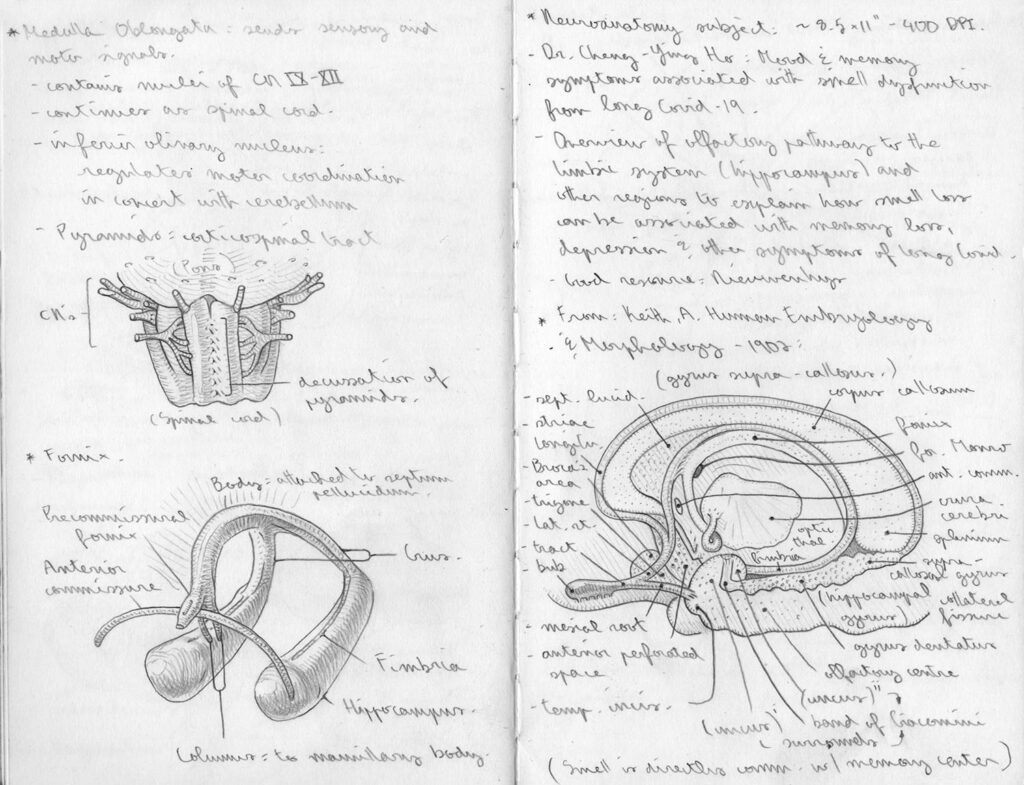 * Medulla Oblongata: sends sensory and
motor signals.
- contains nuclei of CN IX-XII
- continues as spinal cord.
- inferior olivary nucleus:
regulates motor coordination
in concert with cerebellum
- Pyramids = corticospinal tract
(Pons)
CN's
decussation of
pyramids.
(Spinal cord)
* Fornix.
Body = attached to septum
pellucidum.
Precommissural
fornix
Crus.
Anterior
commissure
Fimbria
Hippocampus.
Columns = to mamillary body.
* Neuroanatomy subject: ~ 8.5 x 11" - 400 DPI.
- Dr. Cheng-Ying Ho: Mood & memory
symptoms associated with smell dysfunction
from long Covid-19.
- Overview of olfactory pathway to the
limbic system (hippocampus) and
other regions to explain how smell loss
can be associated with memory loss,
depression & other symptoms of long Covid.
- Good resource: Nieuwenhuys
* From: Keith, A. Human Embryology
& Morphology - 1902:
(gyrus supra-callosus.)
- sept. lucid.
corpus callosum
- striae
longit.
fornix
for. Monro
- Broca's
area
ant. comm.
- trigone
crura
cerebri
- Lat. rt.
optic
thal.
splenium
- tract
fimbria
supra-
callosal gyrus
- bulb
(hippocampal
gyrus)
collateral
fissure
- mesial root
gyrus dentatus
- anterior perforated
space
olfactory centre
- temp. incis.
(uncus)"
(uncus)'
band of Giacomini
(surrounds
(Smell is directly comm. w/ memory center)